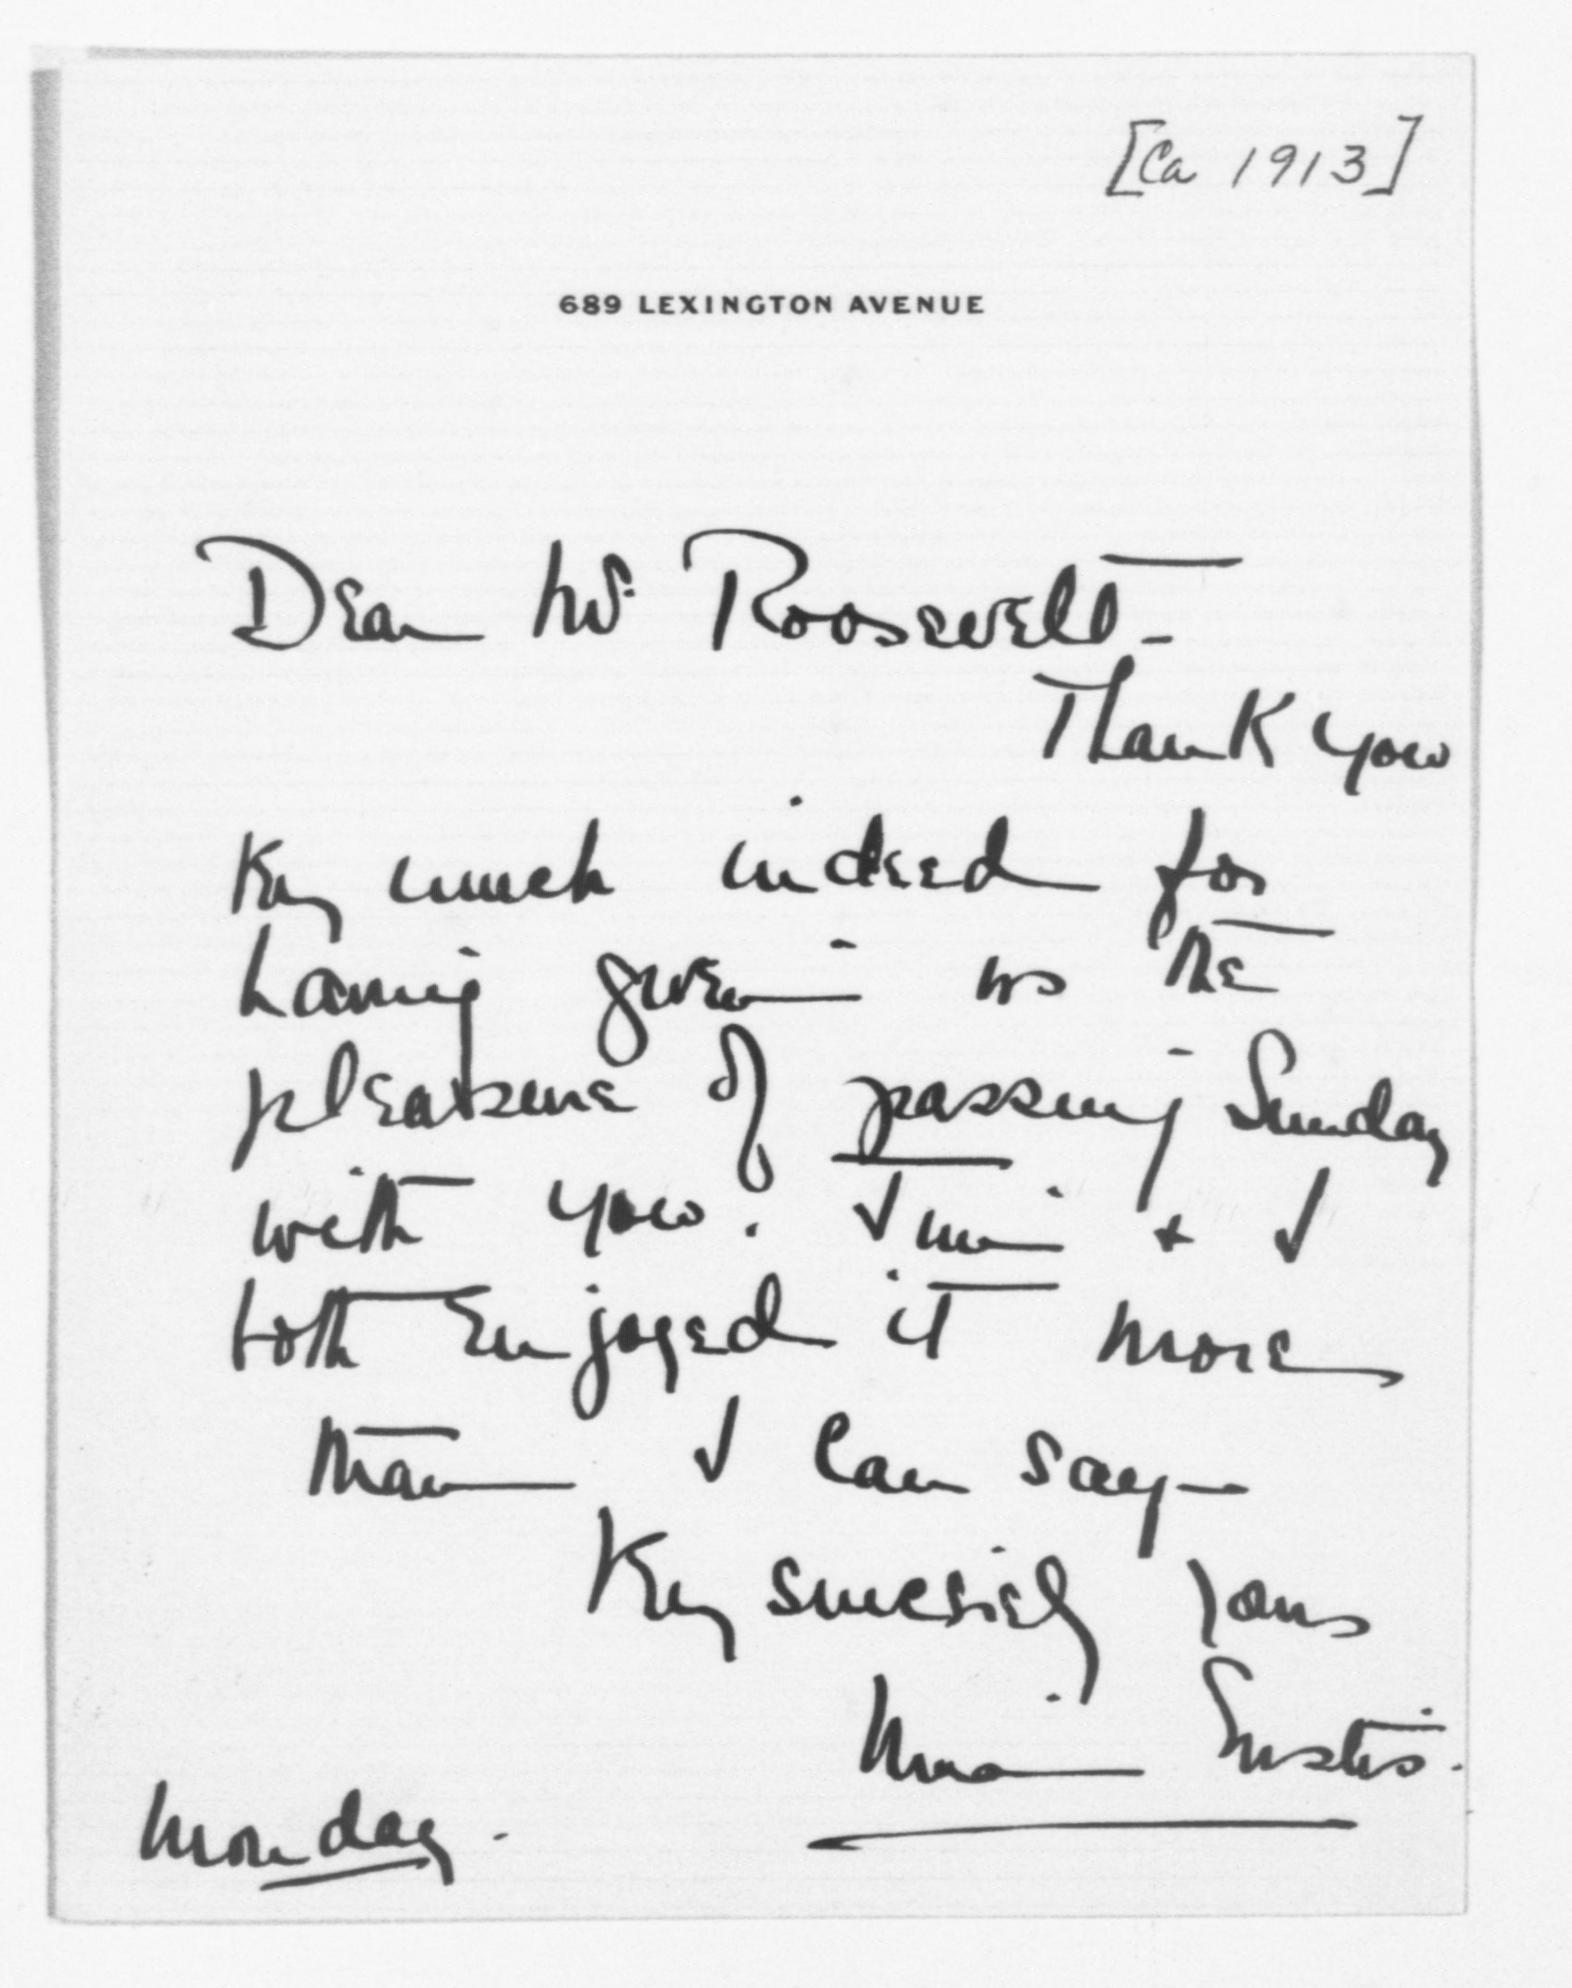 [Ca 1913]
689 LEXINGTON AVENUE
Dear Mr. Roosevelt -
Thank you
Very much indeed for
having given us the
pleasure of passing Sunday
with you. Jim + I
both enjoyed it more
than I can say -
Very sincerely yours
Eustis.
Monday.